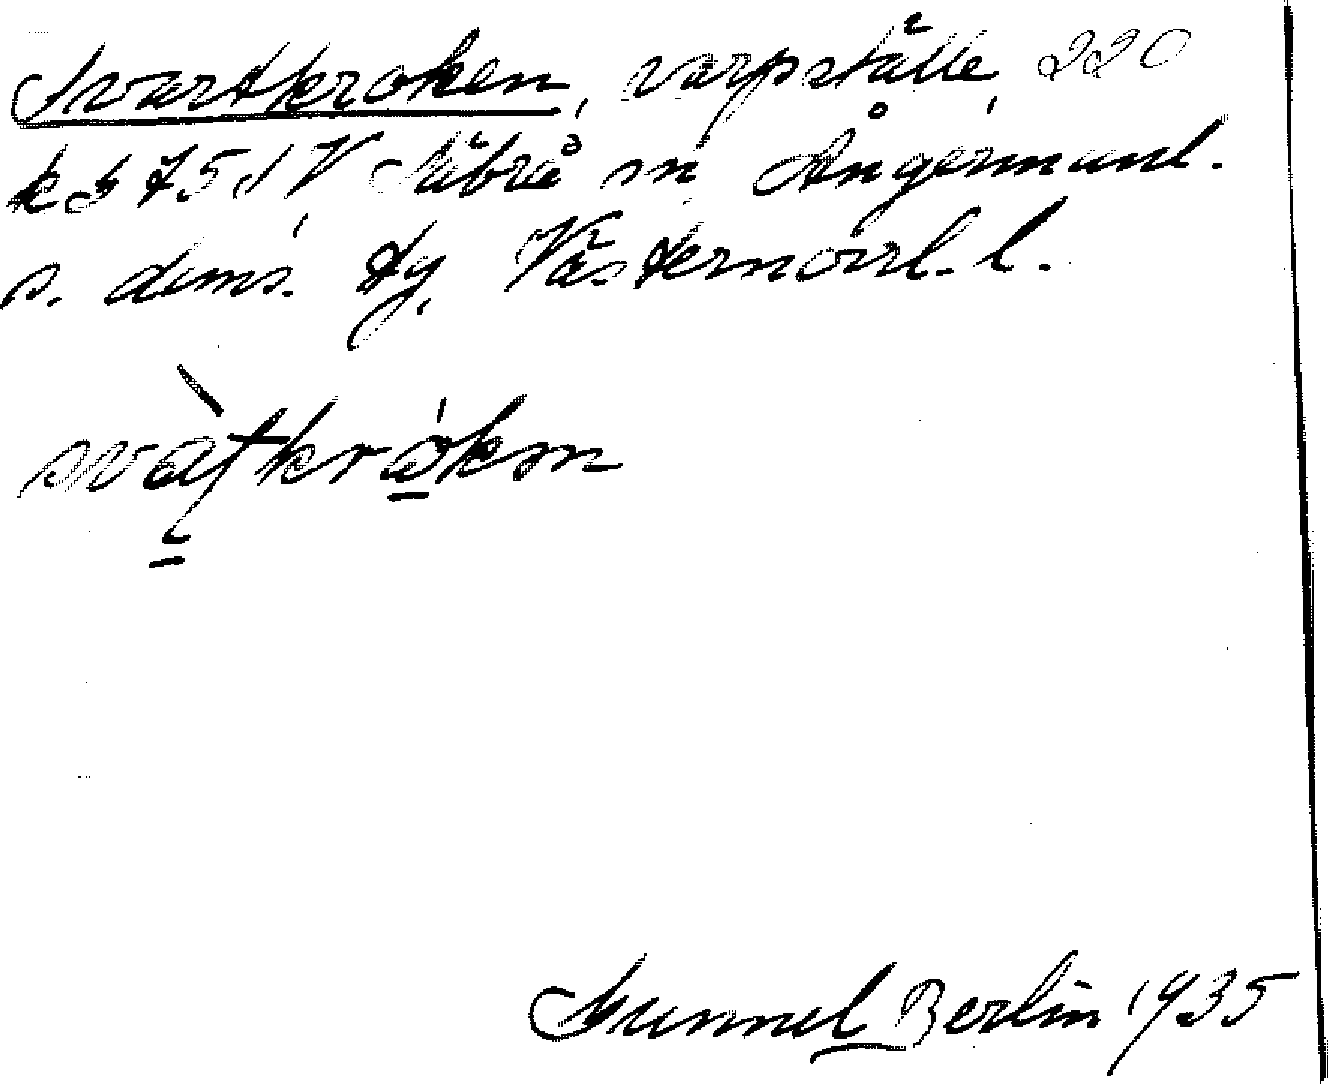 Svartkroken, varpställe, 220
kb 751V Nätrå sn, Ångermanl.
s. doms. tg, Västernorrl. l.
svàtkrókɷn
Gunnel Berlin 1935